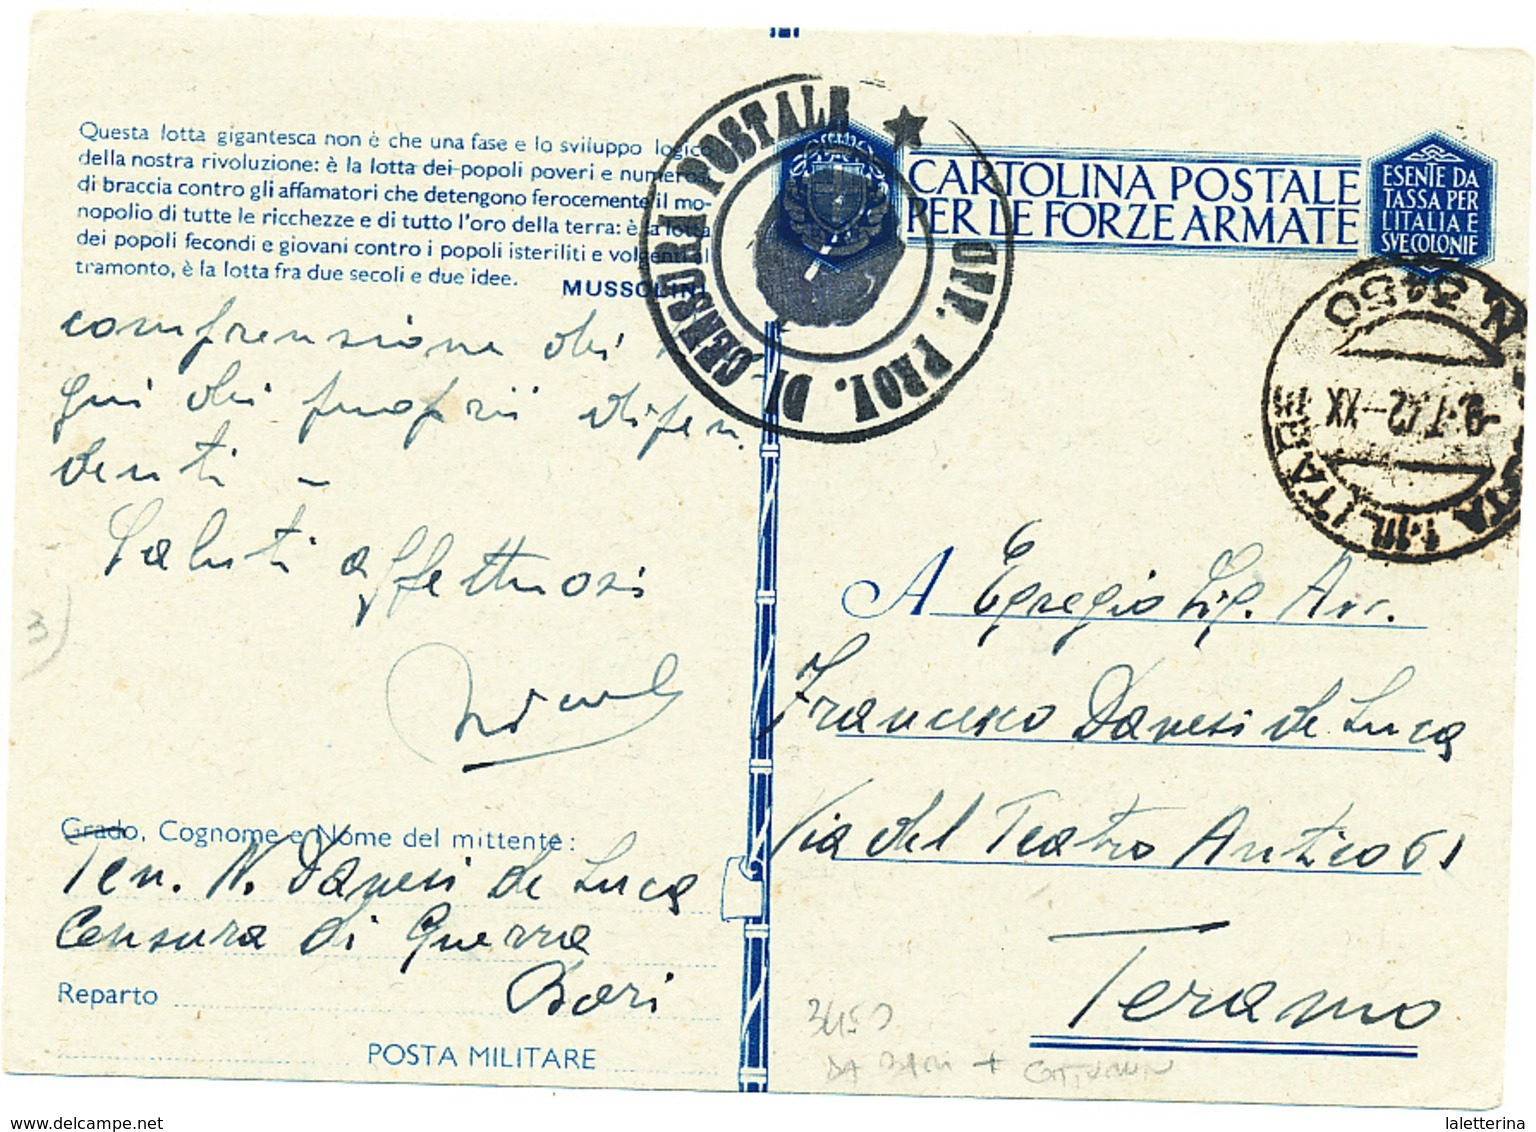 Questa lotta gigantesca non è che una fase e lo sviluppo logico
della nostra rivoluzione: è la lotta dei popoli poveri e numerosi
di braccia contro gli affamatori che detengono ferocemente il mo-
nopolio di tutte le ricchezze e di tutto l'oro della terra: è la lotta
dei popoli fecondi e giovani contro i popoli isteriliti e volgenti al
tramonto, è la lotta fra due secoli e due idee.
MUSSOLINI
comprensione dei
qui dei proprii difen
denti –
Saluti affettuosi
Grado, Cognome e Nome del mittente:
Ten. N. Danesi de Luca
Censura di Guerra
Bari
Reparto
POSTA MILITARE
3)
UFF. PROV. DI CENSURA POSTALE ★
CARTOLINA POSTALE
PER LE FORZE ARMATE
ESENTE DA
TASSA PER
L'ITALIA E
SVE COLONIE
POSTA MILITARE
N. 3450
-9.1.42-XX
A Egregio Sig. Avv.
Francesco Danesi de Luca
Via del Teatro Antico 61
Teramo
3450
DA BARI +
delcampe.net
laletterina